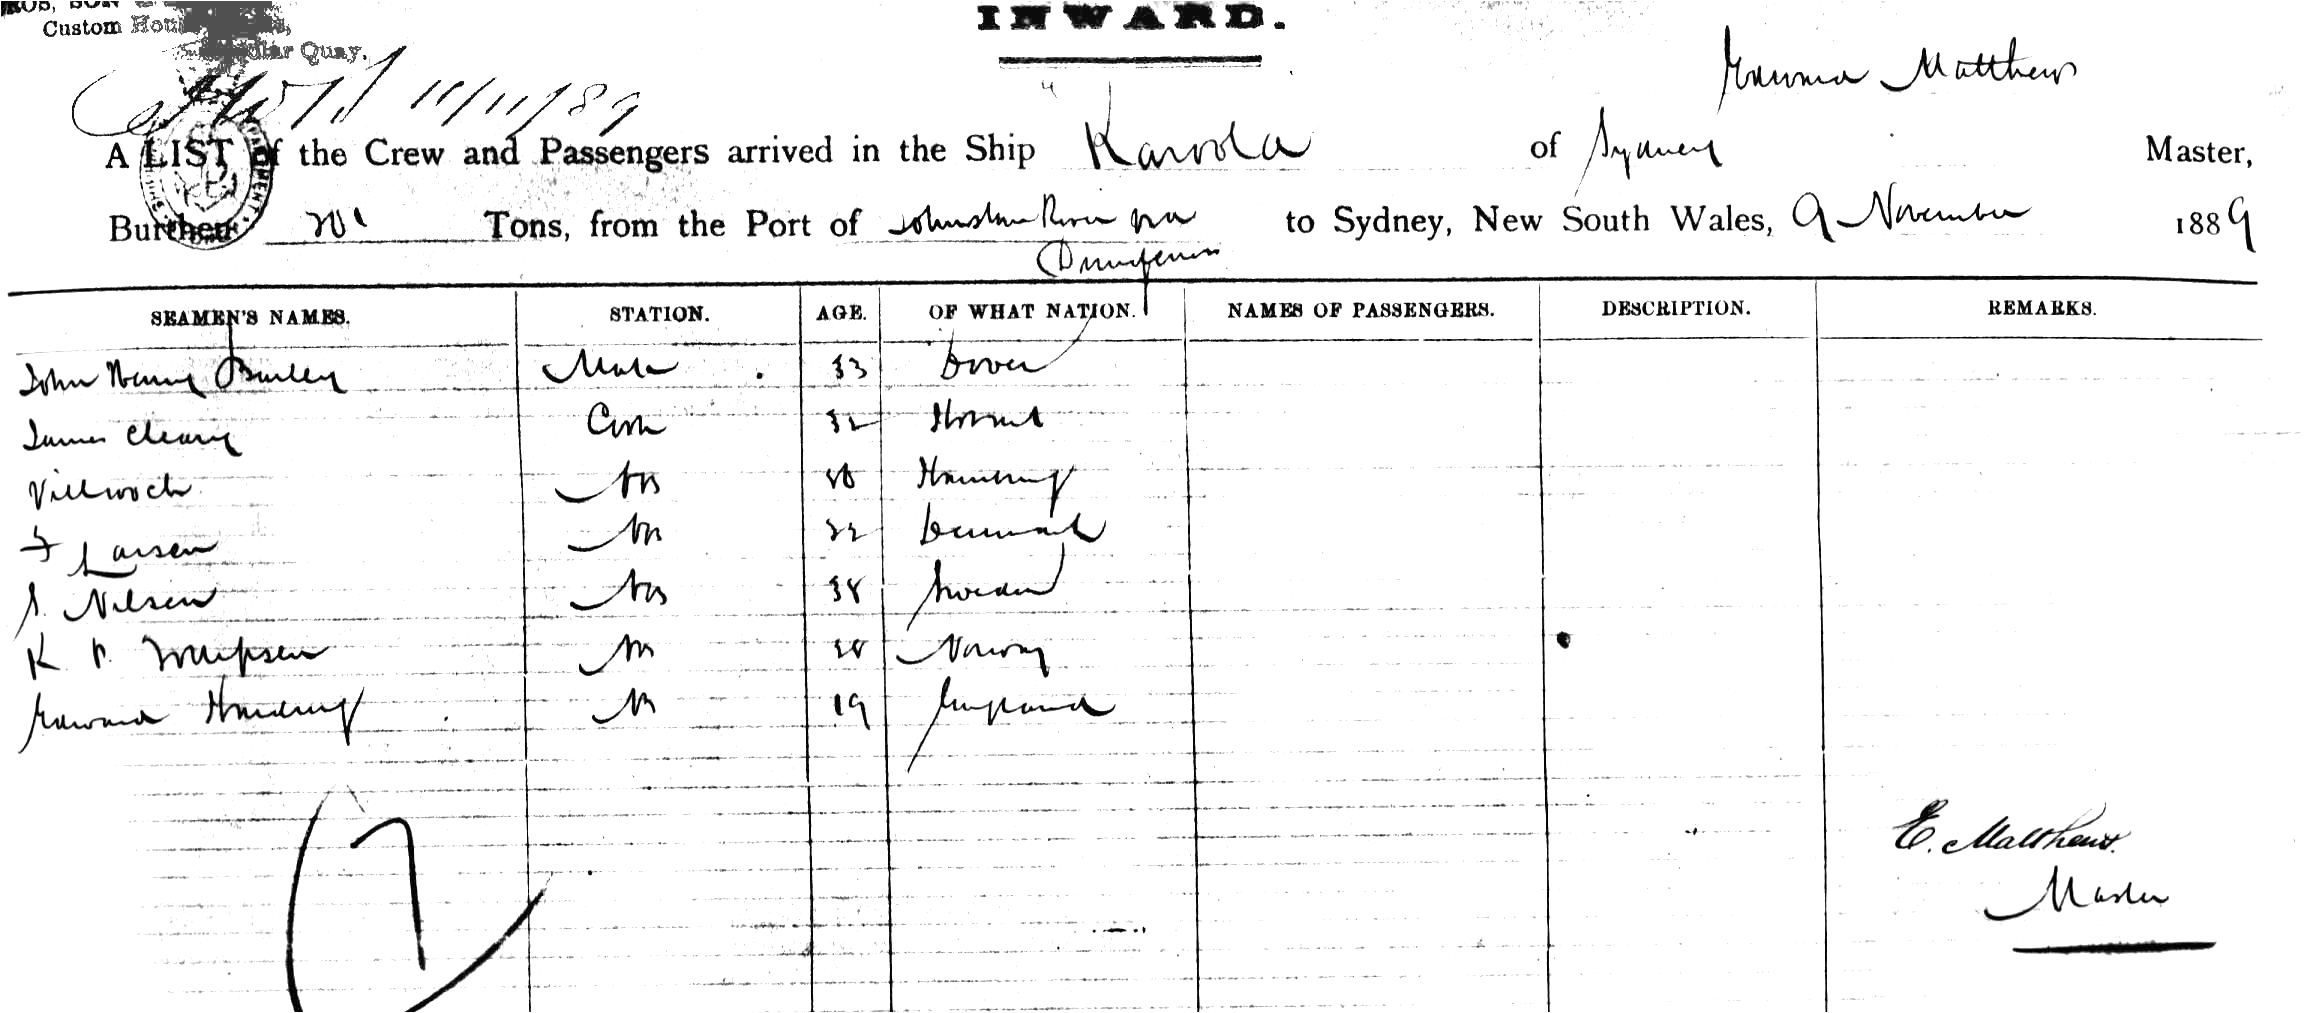 SON
Custom House
Circular Quay.
INWARD.
Edward Matthews
11/11/89
A LIST of the Crew and Passengers arrived in the Ship Karoola of Sydney Master,
Burthen Tons, from the Port of Johnstone River via to Sydney, New South Wales, 9 November 1889
SEAMEN'S NAMES. STATION. AGE. OF WHAT NATION. NAMES OF PASSENGERS. DESCRIPTION. REMARKS.
John Henry Burley Mate 33 Dover
James Cleary Cook 32 Hobart
Villwoch AB Hamburg
F Larsen AB 32 Denmark
S. Nilsen AB 38 Sweden
K AB Norway
Edward Harding AB 19 England
7
E. Matthews
Master